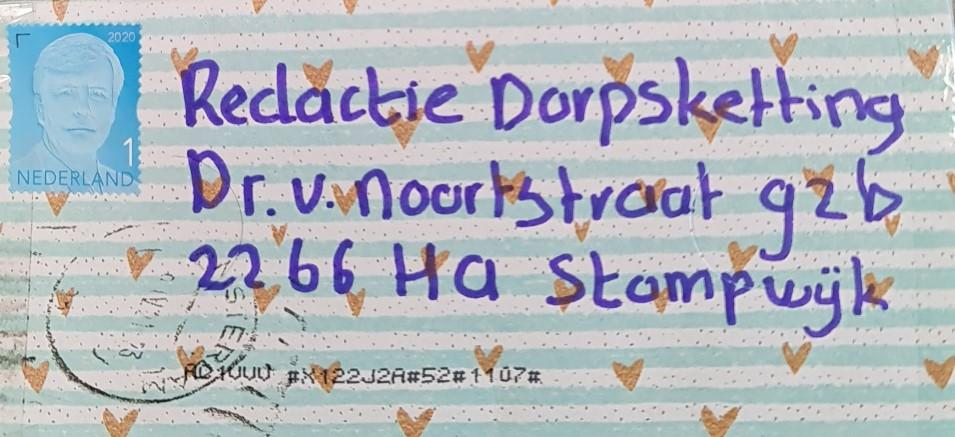 2020
1
NEDERLAND
Redactie Dorpsketting
Dr. v. Noortstraat 92b
2266 HA Stompwijk
#X122J2A#52#1107#